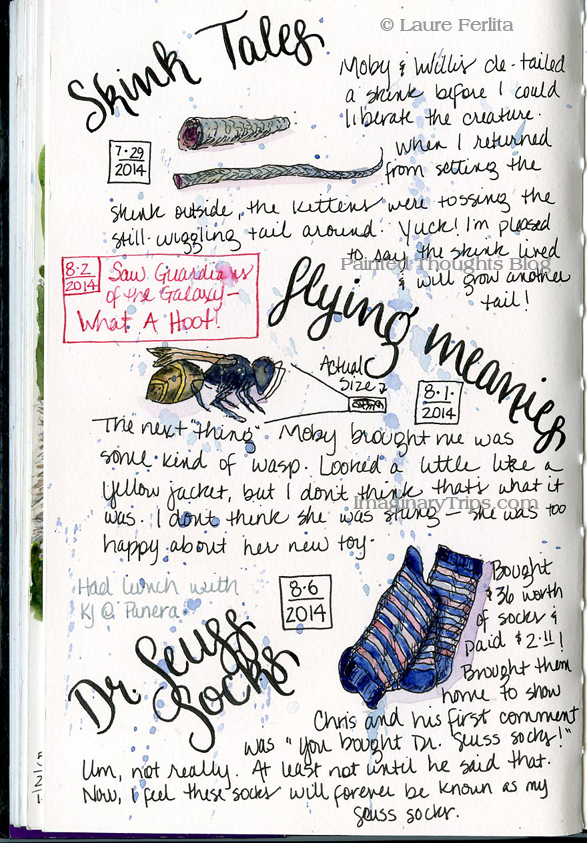 © Laure Ferlita
Skink Tales
Moby & Willis de-tailed
a skink before I could
liberate the creature.
7·29
2014
When I returned
from setting the
skink outside, the kittens were tossing the
still-wiggling tail around. Yuck! I'm pleased
to say the skink lived
& will grow another
tail!
Painted Thoughts Blog
8·2
2014
Saw Guardians
of the Galaxy—
What A Hoot!
flying meanies
Actual
Size
8·1·
2014
The next "thing" Moby brought me was
some kind of wasp. Looked a little like a
yellow jacket, but I don't think that's what it
was. I don't think she was stung — she was too
happy about her new toy.
ImaginaryTrips.com
Had lunch with
KJ @ Panera.
8·6
2014
Dr. Seuss
Socks
Bought
$36 worth
of socks &
paid $2.11!
Brought them
home to show
Chris and his first comment
was "You bought Dr. Seuss socks!"
Um, not really. At least not until he said that.
Now, I feel these socks will forever be known as my
Seuss socks.